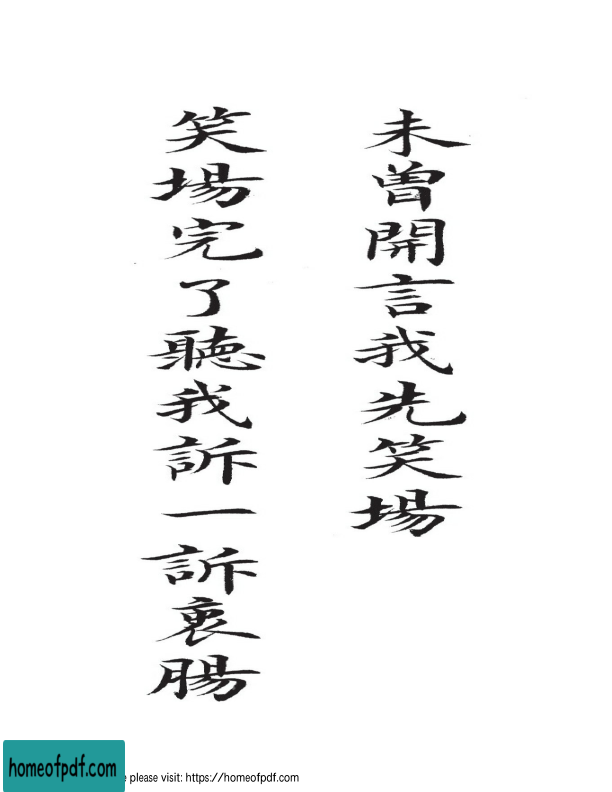 未曾開言我先笑場
笑場完了聽我訴一訴衷腸
homeofpdf.com
e please visit: https://homeofpdf.com